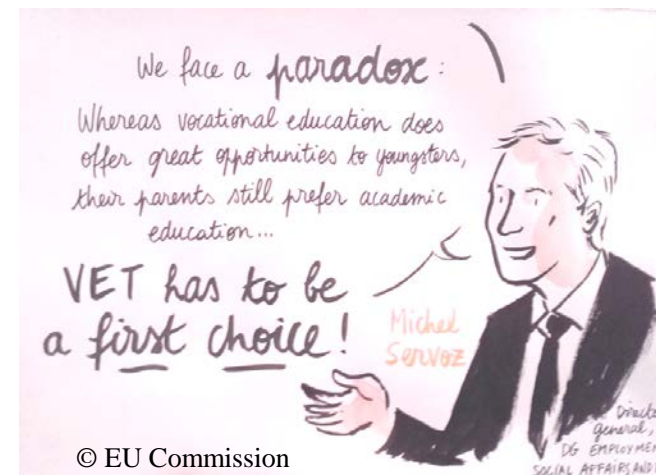 We face a paradox:
Whereas vocational education does
offer great opportunities to youngsters,
their parents still prefer academic
education...
VET has to be
a first choice!
Michel
Servoz
general,
DG EMPLOYMEN
SOCIAL AFFAIRS AND
© EU Commission